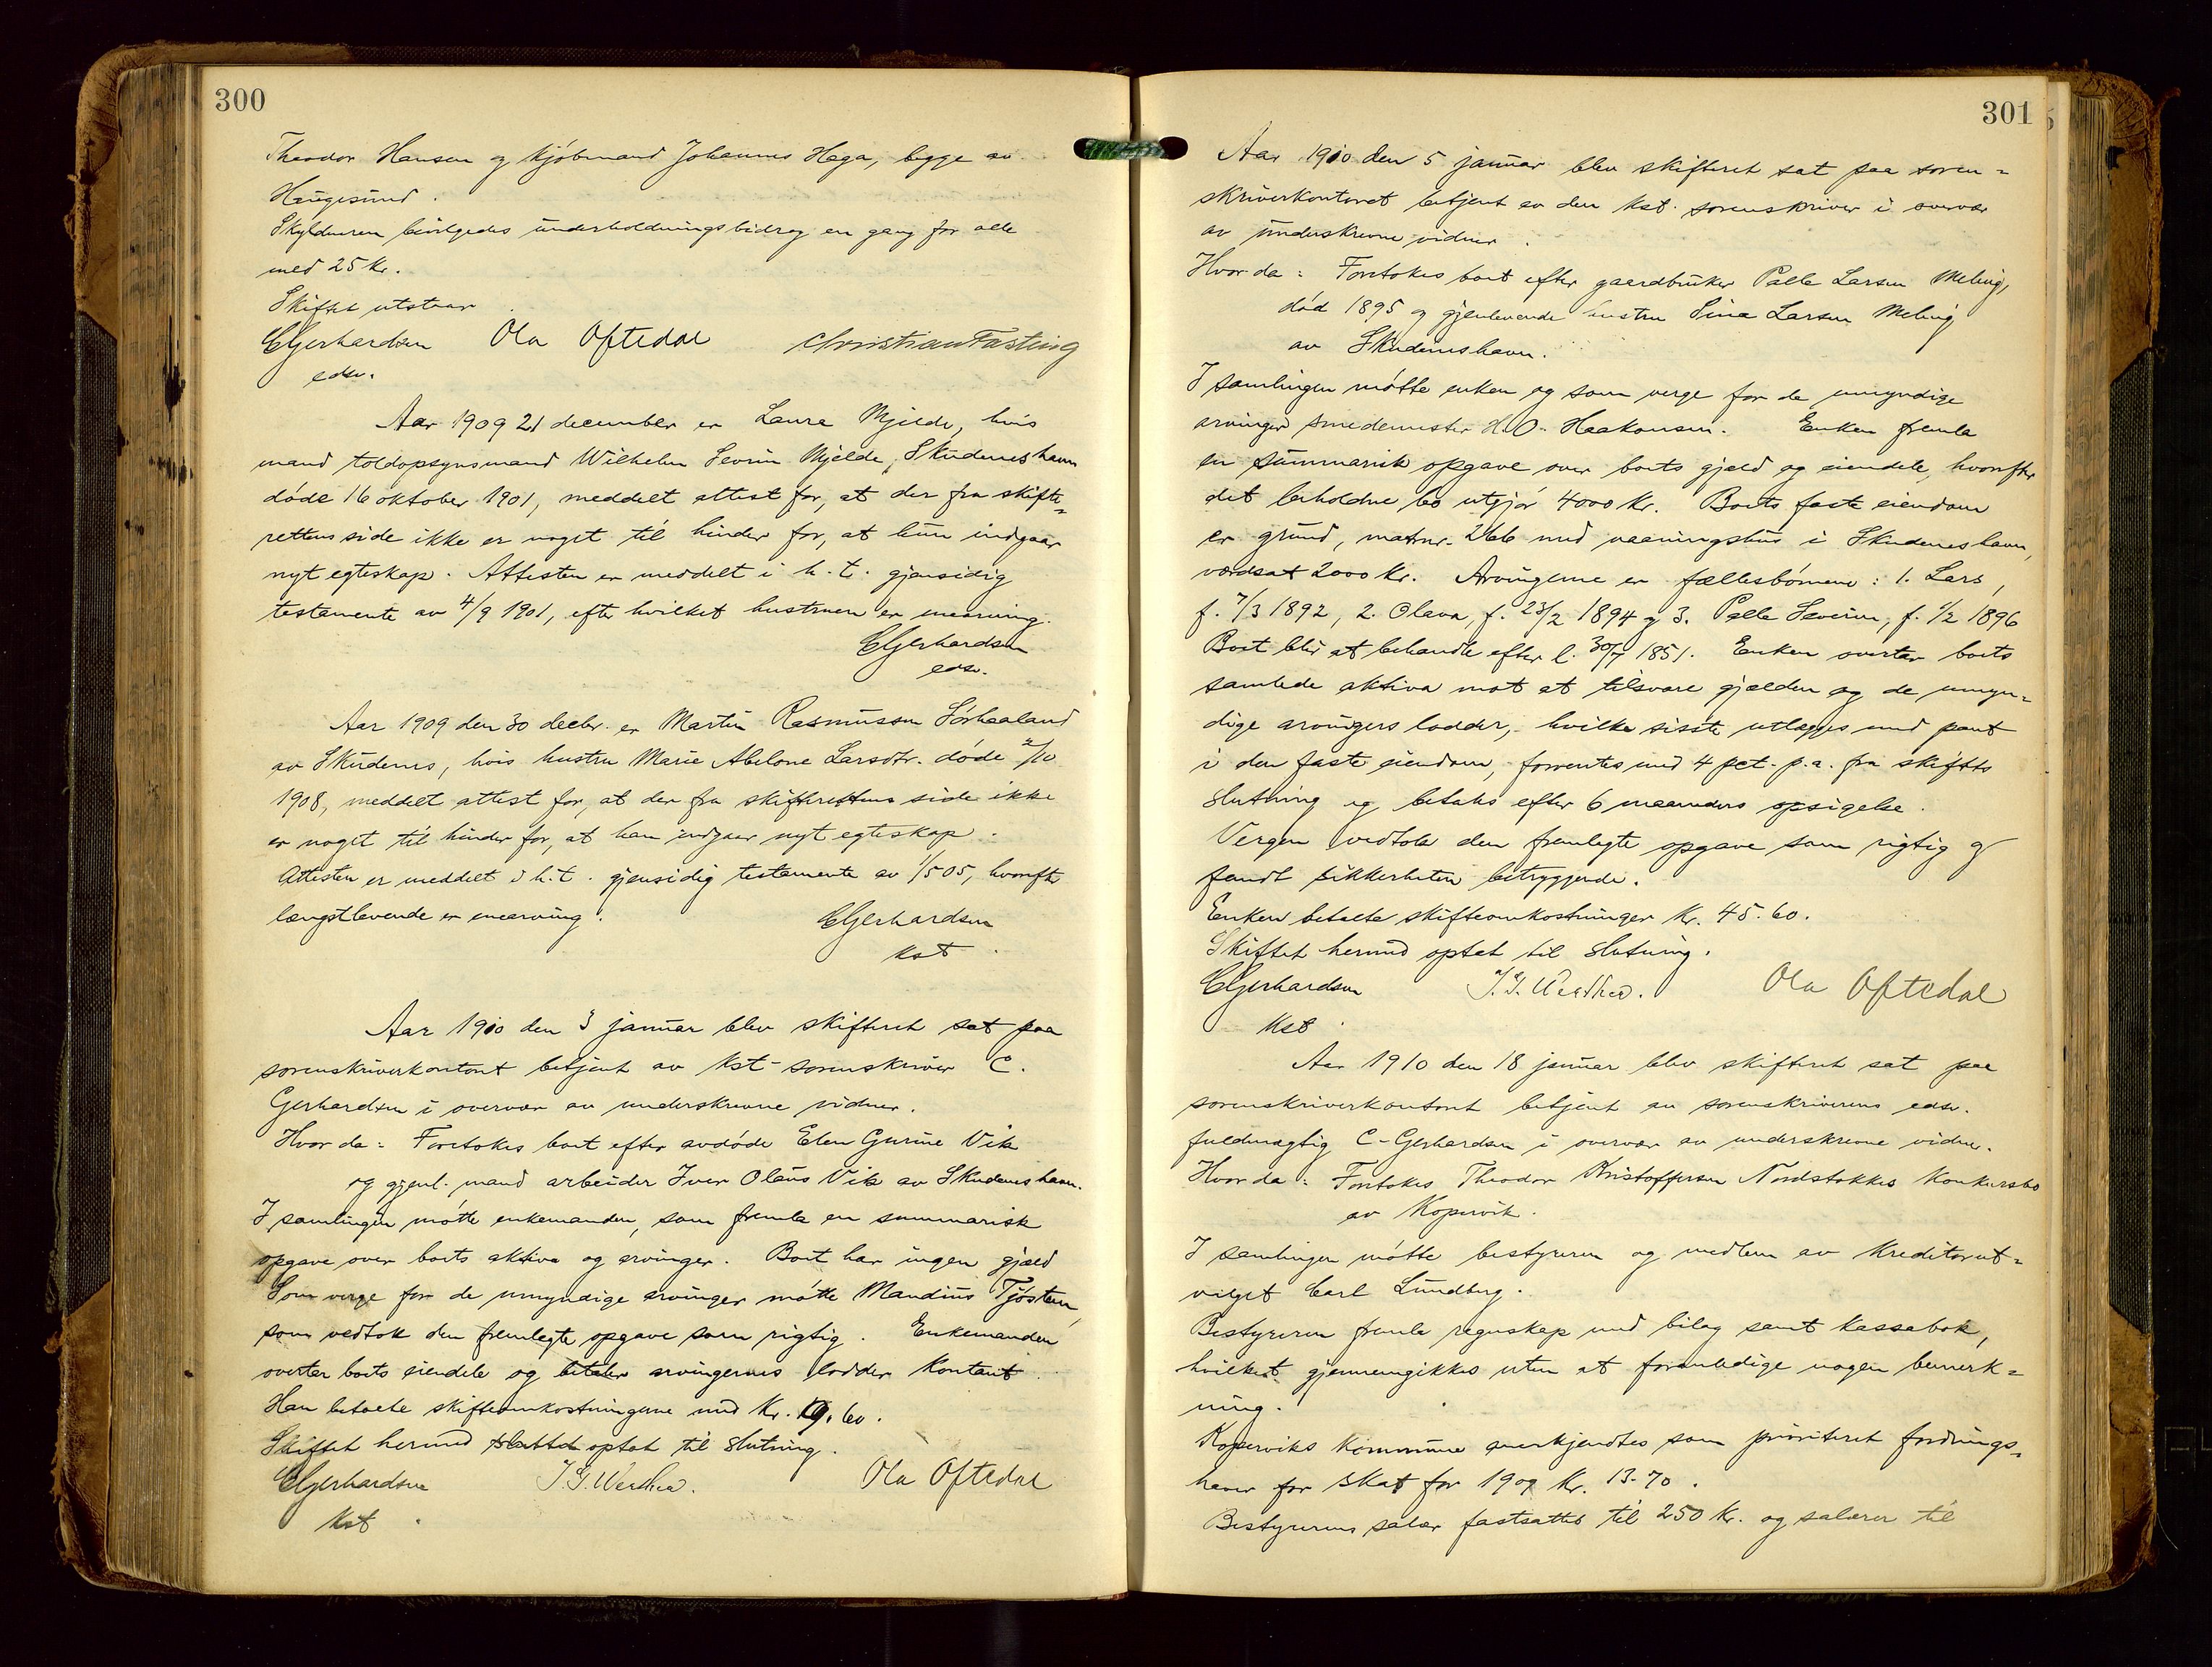 300
Theodor Hansen og kjöbmand Johannes Haga, begge av
Haugesund.
Skyldneren bevilgedes underholdningsbidrag en gang for alle
med 25 kr.
Skiftet utstaar
CGerhardsen Ola Oftedal Christian Fasting
edsv.
Aar 1909 21 december er Laura Mjelde, hvis
mand toldopsynsmand Wilhelm Sevrin Mjelde, Skudeneshavn
döde 16 oktober 1901, meddelt attest for, at der fra skifte-
rettens side ikke er noget til hinder for, at hun indgaar
nyt egteskap. Attesten er meddelt i h. t. gjensidig
testamente av 4/9 1901, efter hvilket hustruen er enearving.
CGerhardsen
edsv.
Aar 1909 den 30 decbr. er Martin Rasmussen Sörhaaland
av Skudenes, hvis hustru Marie Abelone Larsdtr. döde /10
1908, meddelt attest for, at der fra skifterettens side ikke
er noget til hinder for, at han indgaar nyt egteskap.
Attesten er meddelt i h. t. gjensidig testamente av 1/5 05, hvorefter
længstlevende er enearving.
CGerhardsen
kst
Aar 1910 den 3 januar blev skifteret sat paa
sorenskriverkontoret betjent av kst- sorenskriver C.
Gerhardsen i overvær av underskrevne vidner.
Hvor da: Foretokes boet efter avdöde Elen Gurine Vik
og gjenl. mand arbeider Iver Olaus Vik av Skudeneshavn.
I samlingen mötte enkemanden, som fremla en summarisk
opgave over boets aktiva og arvinger. Boet har ingen gjæld
Som verge for de umyndige arvinger mötte Mandius Tjösten,
som vedtok den fremlegte opgave som rigtig. Enkemanden
overtar boets eiendele og betaler arvingernes lodder kontant.
Han betaete skifteomkostningerne med kr. 19.60.
Skiftet hermed sluttet optat til slutning.
CGerhardsen Ola Oftedal
kst
301
Aar 1910 den 5 januar blev skifteret sat paa soren-
skriverkontoret betjent av den kst. sorenskriver i overvær
av underskrevne vidner.
Hvor da: Foretokes boet efter gaardbruker Palle Larsen Meling,
död 1895 og gjenlevende hustru Sina Larsen Meling
av Skudeneshavn.
I samlingen mötte enken og som verge for de umyndige
arvinger smedemester H. O. Haakonsen. Enken fremla
en summarisk opgave over boets gjæld og eiendele, hvorefter
det beholdne bo utgjör 4000 kr. Boets faste eiendom
er grund, matrnr. 266 med vaaningshus i Skudeneshavn,
værdsat 2000 kr. Arvingerne er fællesbörnene: 1. Lars,
f. 7/3 1892, 2. Olava, f. 23/2 1894 og 3. Palle Severin, f. 1/2 1896
Boet blir at behandle efter l. 30/7 1851. Enken overtar boets
samlede aktiva mot at tilsvare gjælden og de umyn-
dige arvingers lodder, hvilke sisste utlægges med pant
i den faste eiendom, forrentes med 4 pct. p. a. fra skiftets
slutning og betales efter 6 maaneders opsigelse.
Vergen vedtok den fremlegte opgave som rigtig og
fandt sikkerheten betryggende.
Enken betaete skifteomkostninger kr. 45.60.
Skiftet hermed optat til slutning.
CGerhardsen Ola Oftedal
kst
Aar 1910 den 18 januar blev skifteret sat paa
sorenskriverkontoret betjent av sorenskriverens edsv.
fuldmægtig C. Gerhardsen i overvær av underskrevne vidner.
Hvor da: Foretokes Theodor Kristoffersen Nordstokkes konkursbo
av Kopervik.
I samlingen mötte bestyreren og medlem av kreditorut-
valget Carl Lundberg.
Bestyreren fremla regnskap med bilag samt kassabok,
hvilket gjennemgikkes uten at foranledige nogen bemerk-
ning.
Koperviks kommune anerkjendtes som prioriteret fordrings-
haver for skat for 1909 kr. 13.70.
Bestyrerens salær fastsattes til 250 kr. og salærer til